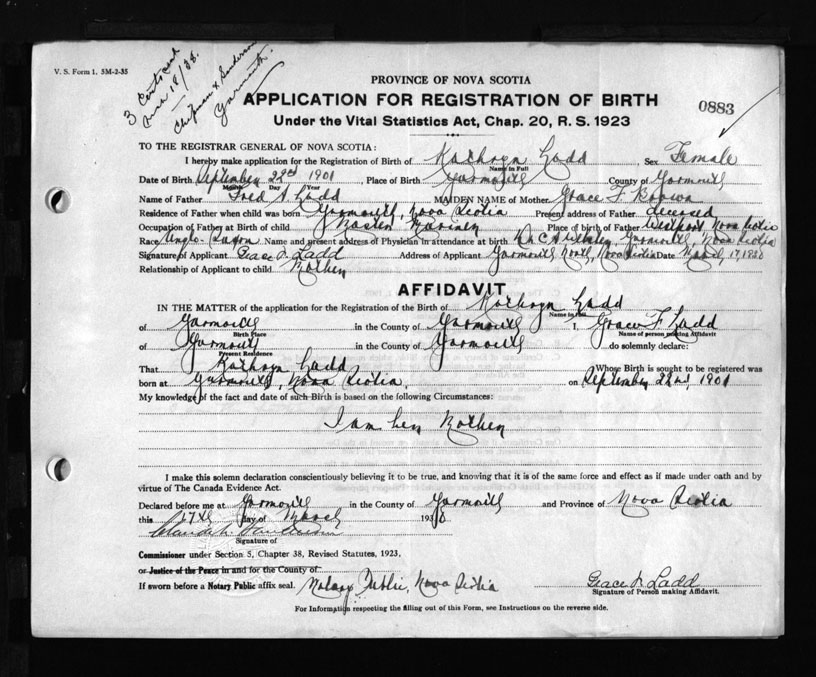 V. S. Form 1. 5M-2-35
3 Certs sent
Mch 18/38.
Chipman & Sanderson
Yarmouth
PROVINCE OF NOVA SCOTIA
APPLICATION FOR REGISTRATION OF BIRTH
0883
Under the Vital Statistics Act, Chap. 20, R. S. 1923
TO THE REGISTRAR GENERAL OF NOVA SCOTIA:
I hereby make application for the Registration of Birth of Kathryn Ladd Sex Female
Name in Full
Date of Birth September 22nd 1901, Place of Birth Yarmouth County of Yarmouth
Month Day Year
Name of Father Fred A. Ladd MAIDEN NAME of Mother Grace F. Brown
Residence of Father when child was born Yarmouth, Nova Scotia Present address of Father deceased
Occupation of Father at Birth of child Master Mariner Place of birth of Father Westport Nova Scotia
Race Anglo-Saxon Name and present address of Physician in attendance at birth Yarmouth, Nova Scotia
Signature of Applicant Grace F. Ladd Address of Applicant Yarmouth North, Nova Scotia Date March 17,
Relationship of Applicant to child Mother
AFFIDAVIT
IN THE MATTER of the application for the Registration of the Birth of Kathryn Ladd
Name in Full
of Yarmouth in the County of Yarmouth I, Grace F. Ladd
Birth Place Name of person making Affidavit
of Yarmouth in the County of Yarmouth do solemnly declare:
Present Residence
That Kathryn Ladd Whose Birth is sought to be registered was
born at Yarmouth, Nova Scotia, on September 22nd, 1901
My knowledge of the fact and date of such Birth is based on the following Circumstances:
I am her Mother
I make this solemn declaration conscientiously believing it to be true, and knowing that it is of the same force and effect as if made under oath and by
virtue of The Canada Evidence Act.
Declared before me at Yarmouth in the County of Yarmouth and Province of Nova Scotia
this 17th day of March 1938
Signature of
Commissioner under Section 5, Chapter 38, Revised Statutes, 1923,
or Justice of the Peace in and for the County of
If sworn before a Notary Public affix seal. Notary Public, Nova Scotia Grace F. Ladd
Signature of Person making Affidavit.
For Information respecting the filling out of this Form, see Instructions on the reverse side.